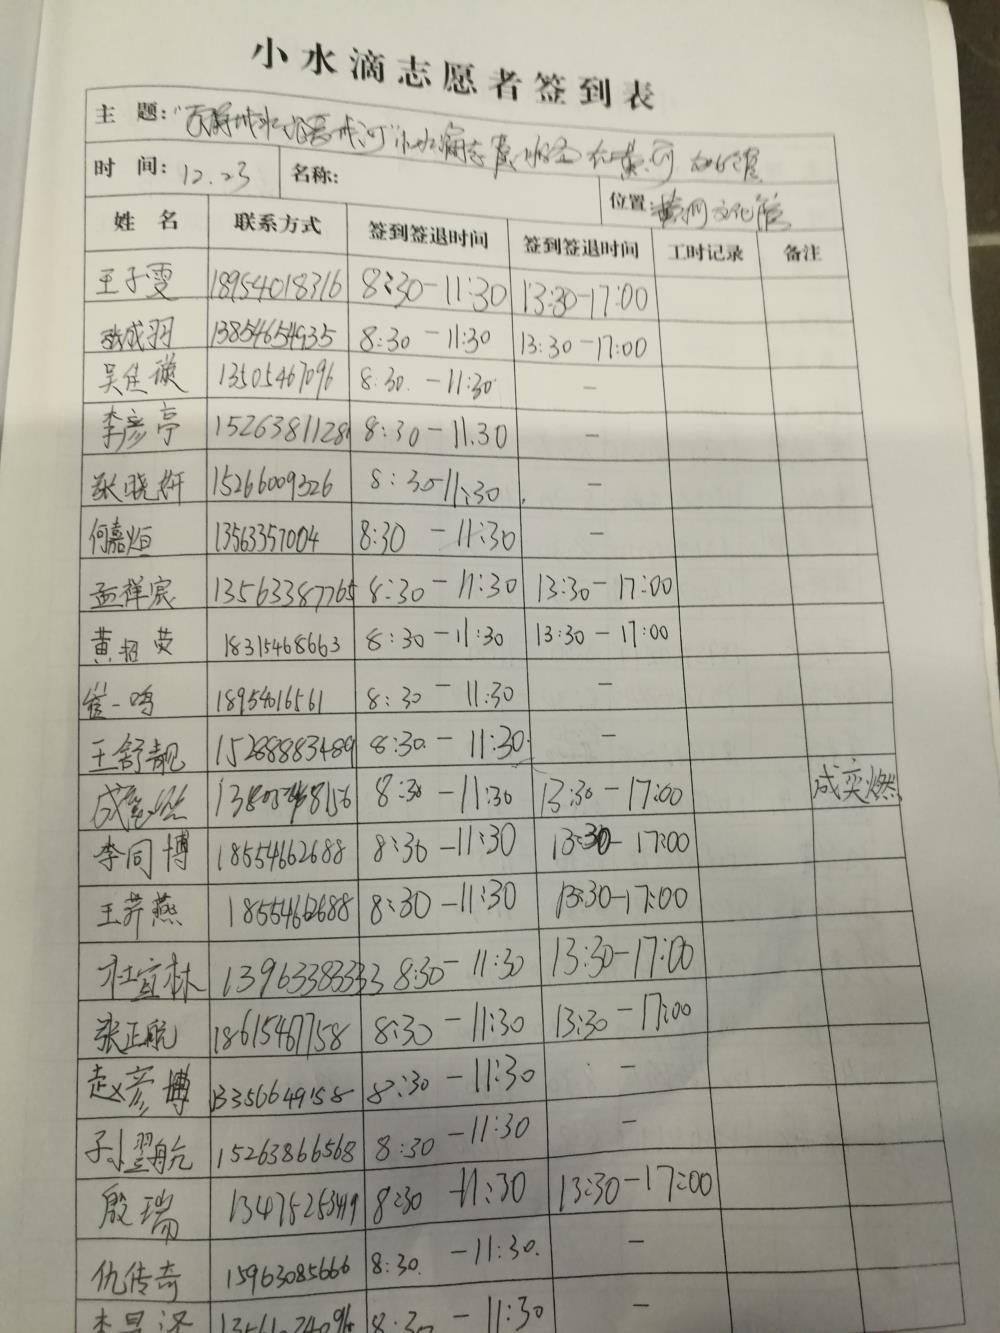 小水滴志愿者签到表
主 题： 小水滴志愿 在黄河
时 间： 12.23 名称： 位置 黄河文化馆
姓 名 联系方式 签到签退时间 签到签退时间 工时记录 备注
王子雯 18954018316 8:30-11:30 13:30-17:00
张成羽 13854654935 8:30-11:30 13:30-17:00
吴佳璇 13505467096 8:30-11:30 -
李彦亭 15263811286 8:30-11:30 -
张晓妍 15266009326 8:30-11:30 -
何嘉烜 13563357004 8:30-11:30 -
孟祥宸 13563387765 8:30-11:30 13:30-17:00
黄招英 18315468663 8:30-11:30 13:30-17:00
崔一鸣 18954016561 8:30-11:30 -
王舒靓 15288883489 8:30-11:30 -
8:30-11:30 13:30-17:00 成奕燃
李同博 18554662688 8:30-11:30 13:30-17:00
王荠燕 18554662688 8:30-11:30 13:30-17:00
杜宜林 13963383333 8:30-11:30 13:30-17:00
张正航 18615467758 8:30-11:30 13:30-17:00
赵彦博 13356649158 8:30-11:30 -
孙翌航 15263866568 8:30-11:30 -
殷瑞 8:30-11:30 13:30-17:00
仇传奇 15963085666 8:30-11:30 -
8:30-11:30 -